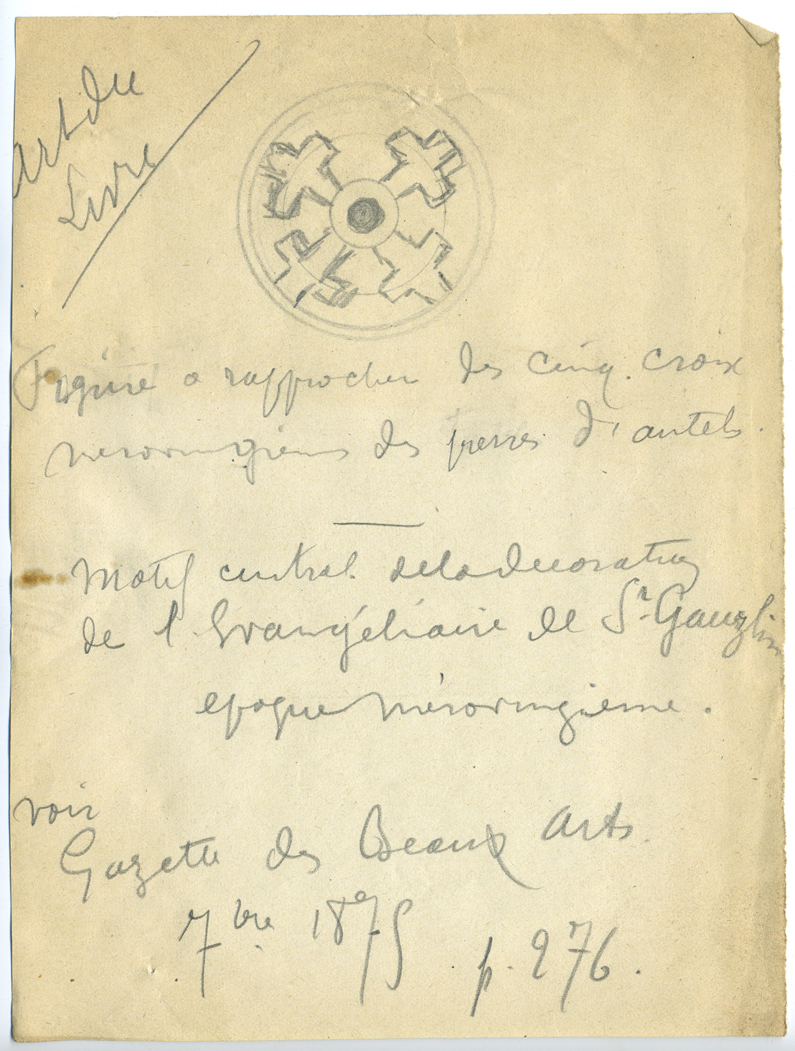 Art du
Livre
Figure a rapprocher des cinq croix
merovingiens des pierres d'autels.
Motif central de la decoration
de l'Evangéliaire de St Gauzlin
epoque mérovingienne.
voir
Gazette des Beaux Arts.
7bre 1875 p. 276.